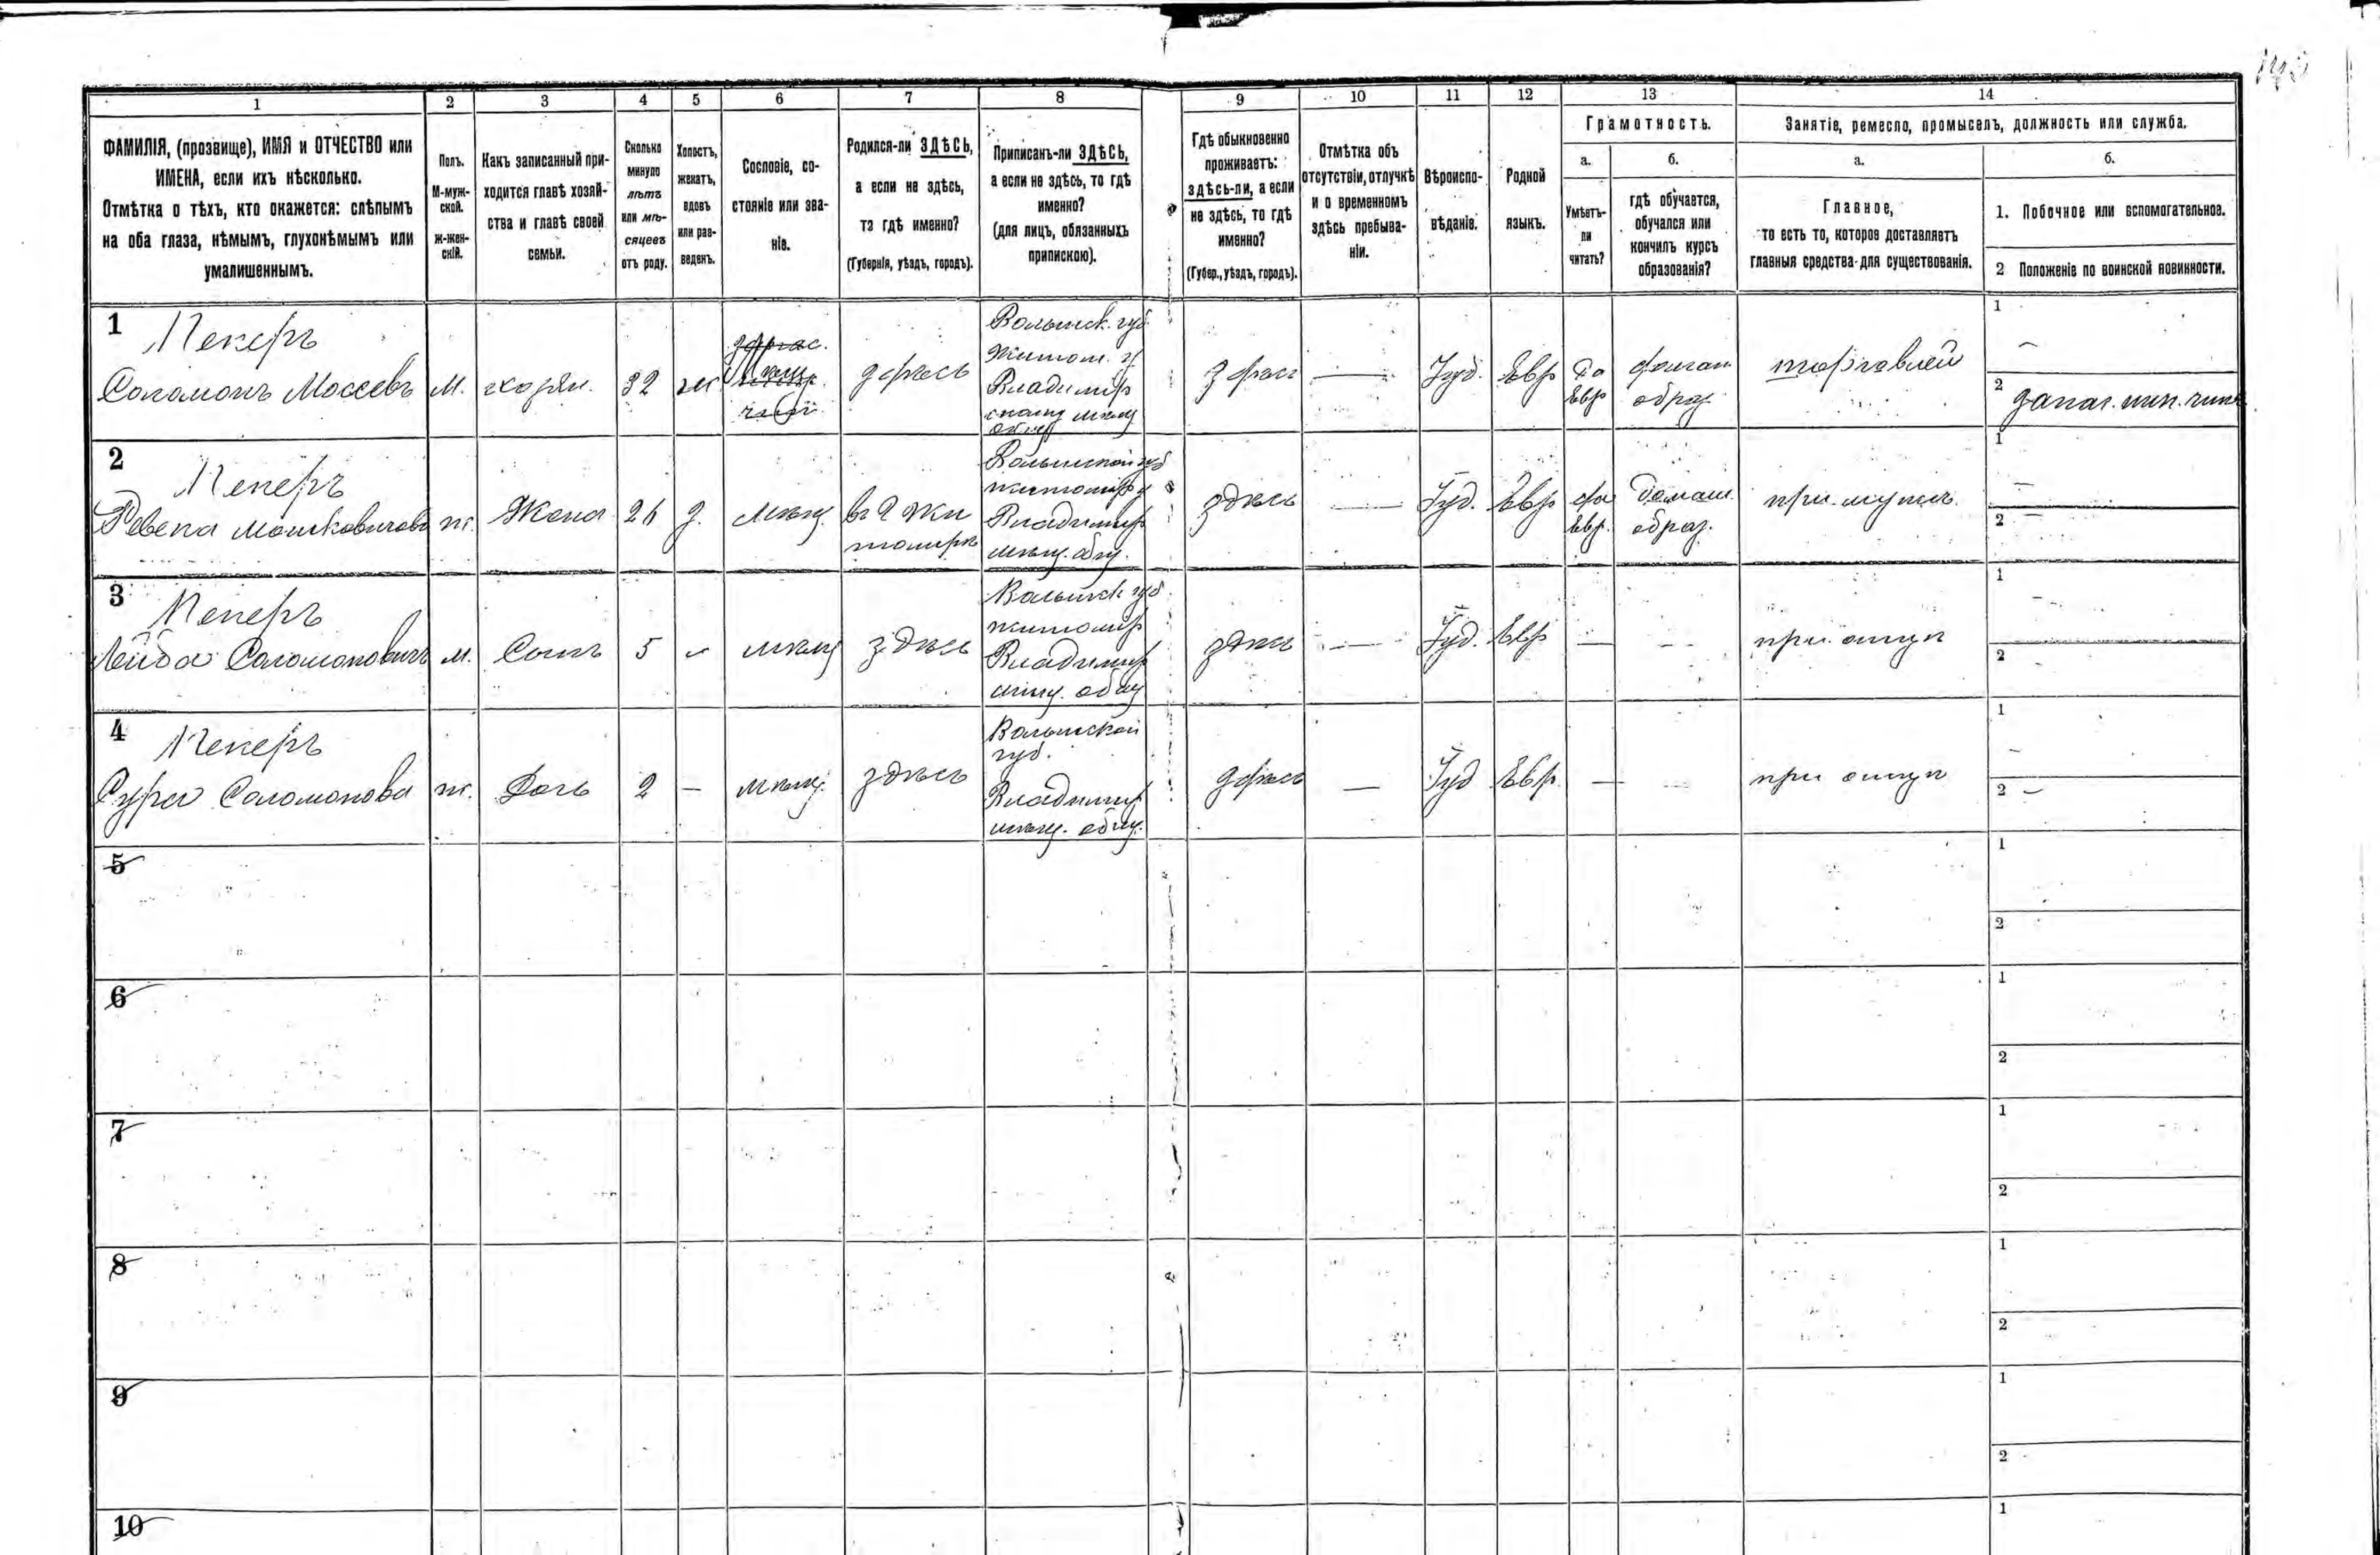 1 2 3 4 5 6 7 8 9 10 11 12 13 14
ФАМИЛІЯ, (прозвище), ИМЯ и ОТЧЕСТВО или
ИМЕНА, если ихъ нѣсколько.
Отмѣтка о тѣхъ, кто окажется: слѣпымъ
на оба глаза, нѣмымъ, глухонѣмымъ или
умалишеннымъ.
Полъ.
М-муж-
ской.
Ж-жен-
скій.
Какъ записанный при-
ходится главѣ хозяй-
ства и главѣ своей
семьи.
Сколько
минуло
лѣтъ
или мѣ-
сяцевъ
отъ роду.
Холостъ,
женатъ,
вдовъ
или раз-
веденъ.
Сословіе, со-
стояніе или зва-
ніе.
Родился-ли ЗДѢСЬ,
а если не здѣсь,
то гдѣ именно?
(Губернія, уѣздъ, городъ).
Приписанъ-ли ЗДѢСЬ,
а если не здѣсь, то гдѣ
именно?
(для лицъ, обязанныхъ
припискою).
Гдѣ обыкновенно
проживаетъ:
здѣсь-ли, а если
не здѣсь, то гдѣ
именно?
(Губер., уѣздъ, городъ).
Отмѣтка объ
отсутствіи, отлучкѣ
и о временномъ
здѣсь пребыва-
ніи.
Вѣроиспо-
вѣданіе.
Родной
языкъ.
Грамотность.
а.
Умѣетъ-
ли
читать?
б.
гдѣ обучается,
обучался или
кончилъ курсъ
образованія?
Занятіе, ремесло, промыселъ, должность или служба.
а.
Главное,
то есть то, которое доставляетъ
главныя средства для существованія.
б.
1. Побочное или вспомогательное.
2 Положеніе по воинской повинности.
1
Пекеръ
Соломонъ Моссевъ
М.
хозяи.
32
жс
здѣсь
Волынск. губ
Житом. у
Владимір
мѣщ
общ
здѣсь
—
Іуд.
Евр
да
Евр
домаш
образ.
торговлей
1 —
2 запас.
2
Пекеръ
Ревека Мошковичова
ж.
Жена
26
з.
мѣщ.
въ г Жи
томирѣ
Волынской губ
житомир у
Владимир
мѣщ. общ.
здѣсь
—
Іуд.
Евр
да
Евр.
домаш.
образ.
при мужѣ
1 —
2 —
3
Пекеръ
Лейба Соломоновичъ
м.
Сынъ
5
–
мѣщ
здѣсь
Волынск губ.
житомир
Владимир
мѣщ. общ
здѣсь
—
Іуд.
Евр
—
—
при отцѣ
1 —
2
4
Пекеръ
Сура Соломонова
ж.
Дочь
2
—
мѣщ.
здѣсь
Волынской
губ.
Владимир
мѣщ. общ.
здѣсь
—
Іуд
Евр.
—
—
при отцѣ
1 —
2 —
5
1
2
6
1
2
7
1
2
8
1
2
9
1
2
10
1